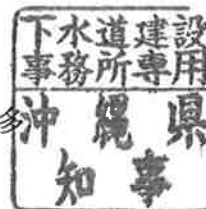 下水道建設
事務所専用
多沖縄県
知事